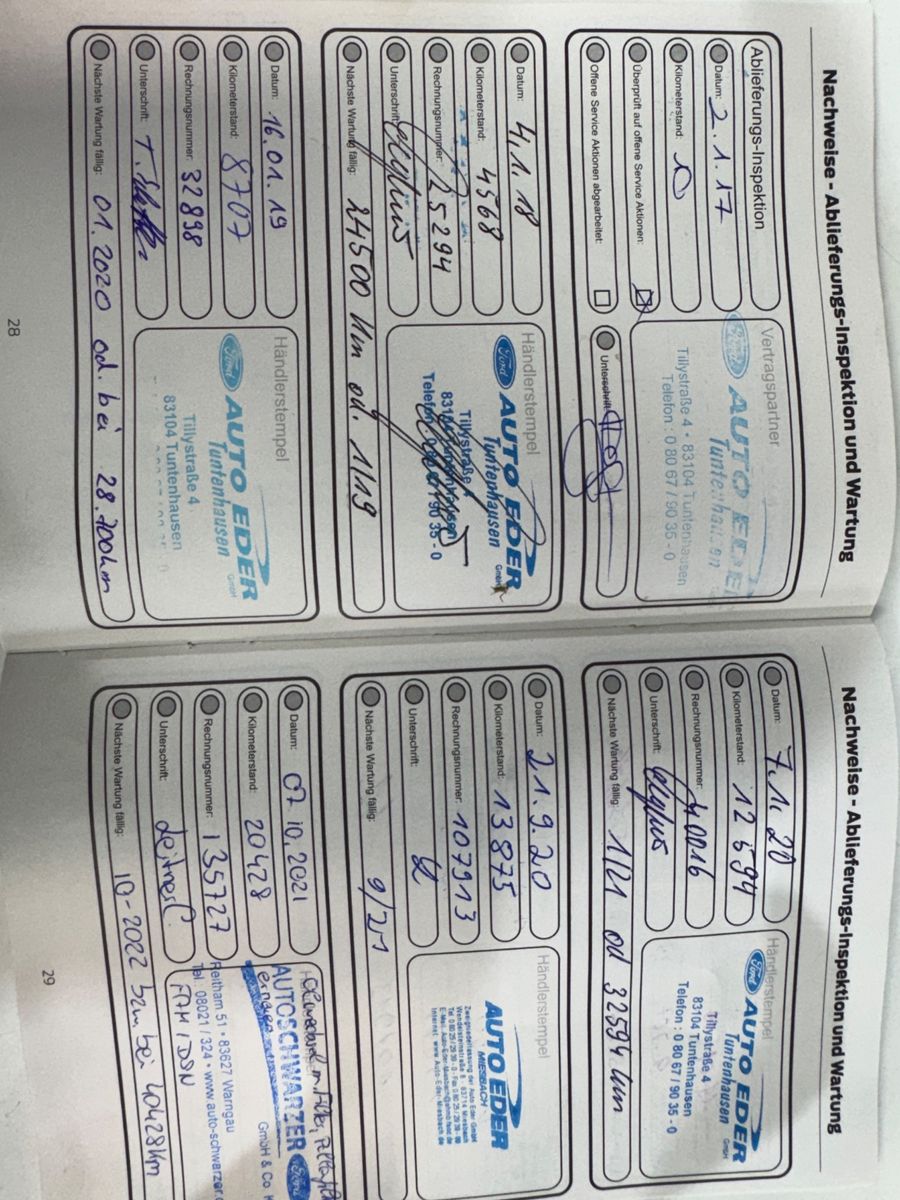 Nachweise - Ablieferungs-Inspektion und Wartung
Ablieferungs-Inspektion
Datum: 2.1.17
Kilometerstand: 0
Überprüft auf offene Service Aktionen:
Offene Service Aktionen abgearbeitet:
Vertragspartner
Ford AUTO EDER
Tuntenhausen
Tillystraße 4 • 83104 Tuntenhausen
Telefon: 0 80 67 / 90 35 - 0
Unterschrift:
Datum: 4.1.18
Kilometerstand: 4568
Rechnungsnummer: 25294
Unterschrift:
Nächste Wartung fällig: 24500 km od. 1/19
Händlerstempel
Ford AUTO EDER
Tuntenhausen GmbH
Tillystraße 4
83104 Tuntenhausen
Telefon 0 80 67 / 90 35 - 0
Datum: 16.01.19
Kilometerstand: 8707
Rechnungsnummer: 32898
Unterschrift:
Nächste Wartung fällig: 01.2020 od. bei 28.700km
Händlerstempel
Ford AUTO EDER
Tuntenhausen GmbH
Tillystraße 4
83104 Tuntenhausen
28
Nachweise - Ablieferungs-Inspektion und Wartung
Datum: 7.1.20
Kilometerstand: 12594
Rechnungsnummer: 40016
Unterschrift:
Nächste Wartung fällig: 1/21 od 32594 km
Händlerstempel
Ford AUTO EDER
Tuntenhausen GmbH
Tillystraße 4
83104 Tuntenhausen
Telefon: 0 80 67 / 90 35 - 0
Datum: 21.9.20
Kilometerstand: 13875
Rechnungsnummer: 107913
Unterschrift:
Nächste Wartung fällig: 9/21
Händlerstempel
AUTO EDER
MIESBACH
Zweigniederlassung der Auto Eder GmbH
Wendelsteinstraße 8 83714 Miesbach
Datum: 07.10.2021
Kilometerstand: 20428
Rechnungsnummer: 135727
Unterschrift: Leitner
Nächste Wartung fällig: 10-2022 bzw. bei 40428km
Ölwechsel m. Filter,
AUTOSCHWARZER Ford
GmbH & Co.
Reitham 51 • 83627 Warngau
Tel.: 08021 / 324 • www.auto-schwarzer.
29